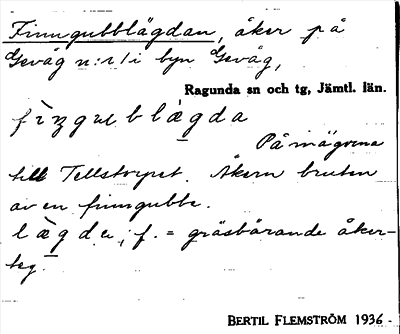 Finngubblägdan, åker på
Gevåg n:r 1 i byn Gevåg,
Ragunda sn och tg, Jämtl. län.
fìŋgubblægda
På vägrena
till Tellstrypet. Åkern bruten
av en finngubbe.
lægde, f. = gräsbärande åker-
teg.
BERTIL FLEMSTRÖM 1936 -